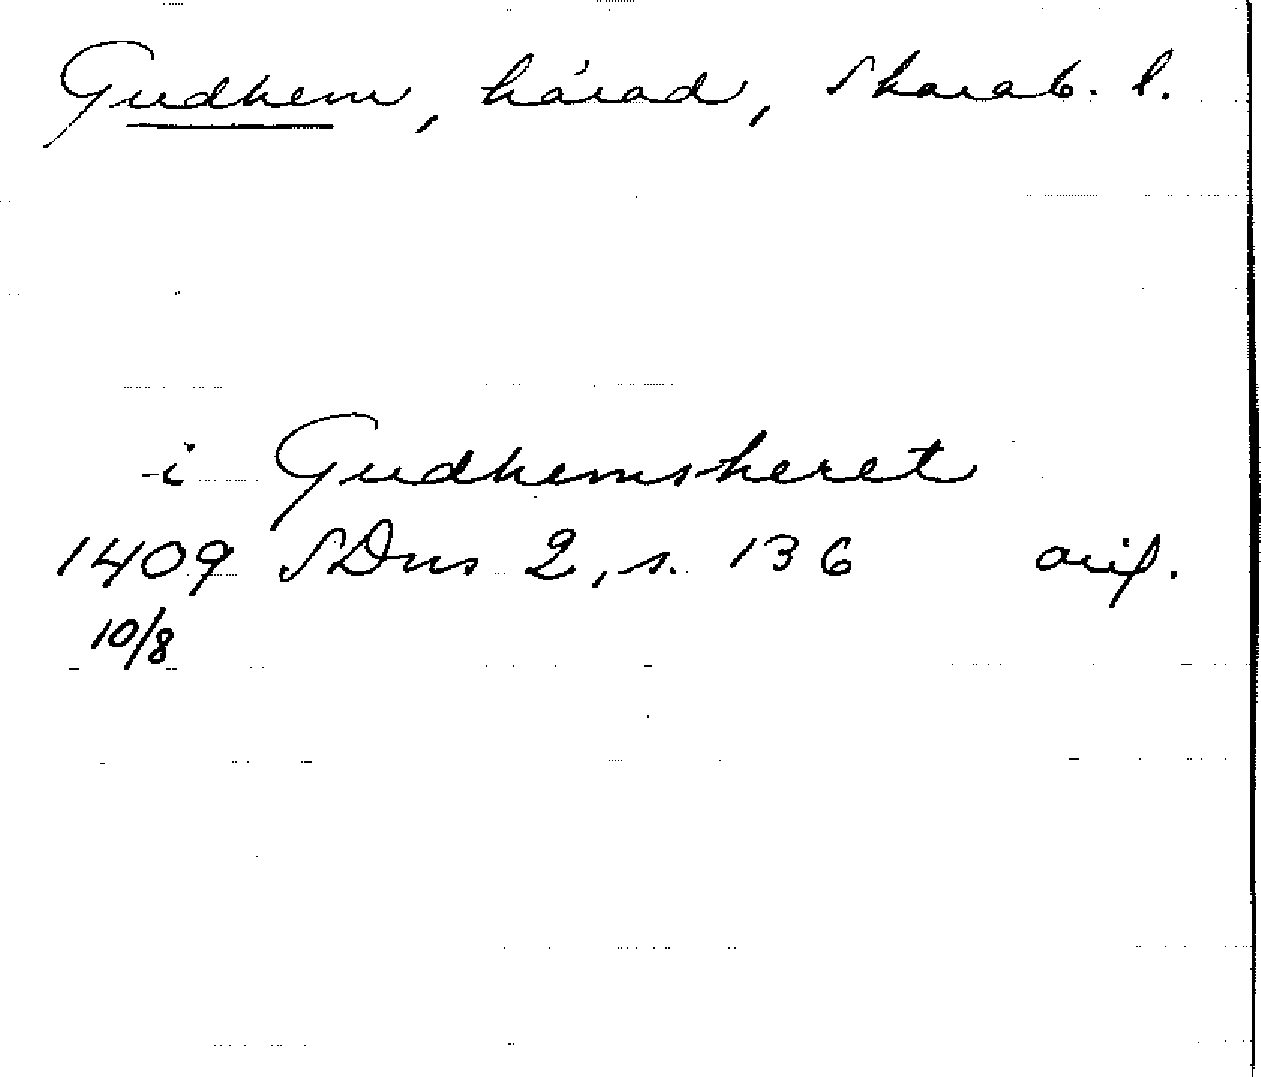 Gudhem, härad, Skarab. l.
i Gudhemsheret
1409 SDns 2, s. 136 orig.
10/8